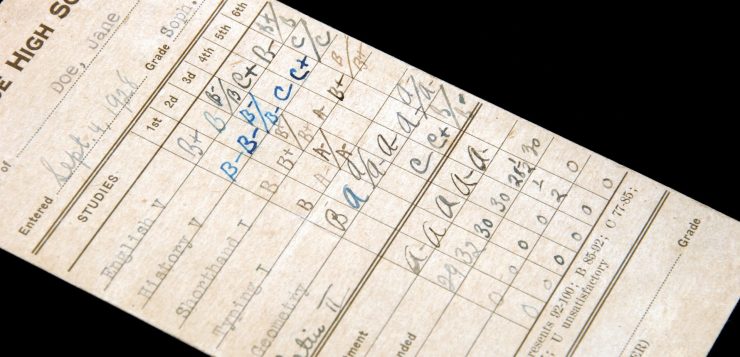 E HIGH SC
of Doe, Jane
Entered Sept 4, 1928 Grade Soph.
STUDIES 1st 2d 3d 4th 5th 6th
English V B+ B B-/B C+ B- B+/B
History V B- B- B-/B- C C+ C/C
Shorthand I B B+ B/B+ A- B+ B/B+
Typing I B A- A/A-
Geometry B A A/A- A- A- A/A-
II C C+ B/B-
ment A- A A A A- A-
nded 29 32 30 30 28½ 30
0 0 0 0 ½ 0
0 0 0 0 2 0
esents 92-100; B, 85-92; C 77-85;
; U unsatisfactory
Grade
ER)